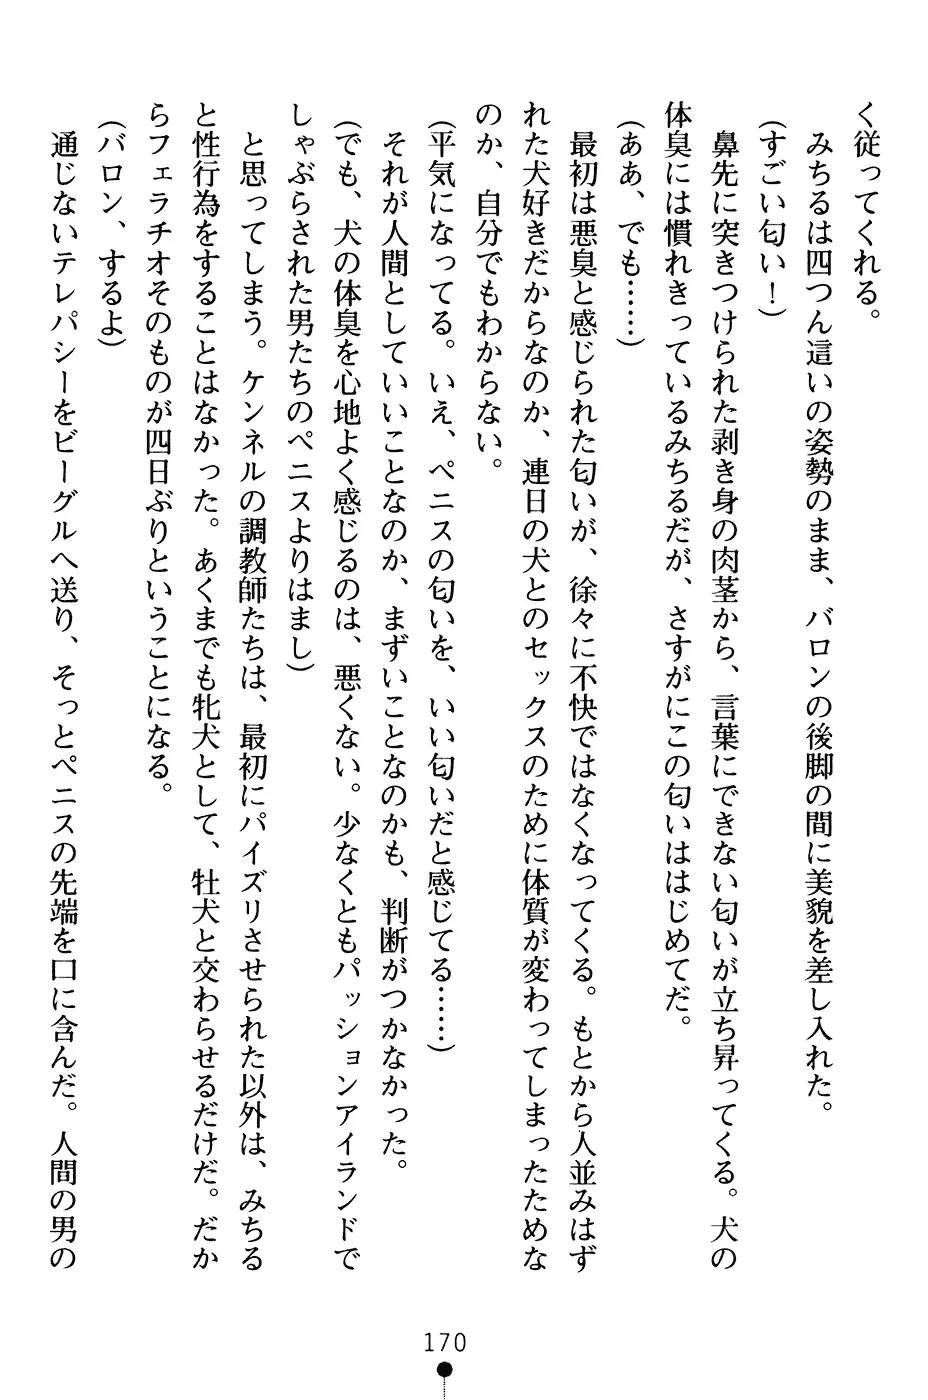 く従ってくれる。
みちるは四つん這いの姿勢のまま、バロンの後脚の間に美貌を差し入れた。
(すごい匂い！)
鼻先に突きつけられた剥き身の肉茎から、言葉にできない匂いが立ち昇ってくる。犬の
体臭には慣れきっているみちるだが、さすがにこの匂いははじめてだ。
(ああ、でも……)
最初は悪臭と感じられた匂いが、徐々に不快ではなくなってくる。もとから人並みはず
れた犬好きだからなのか、連日の犬とのセックスのために体質が変わってしまったためな
のか、自分でもわからない。
(平気になってる。いえ、ペニスの匂いを、いい匂いだと感じてる……)
それが人間としていいことなのか、まずいことなのかも、判断がつかなかった。
(でも、犬の体臭を心地よく感じるのは、悪くない。少なくともパッションアイランドで
しゃぶらされた男たちのペニスよりはまし)
と思ってしまう。ケンネルの調教師たちは、最初にパイズリさせられた以外は、みちる
と性行為をすることはなかった。あくまでも牝犬として、牡犬と交わらせるだけだ。だか
らフェラチオそのものが四日ぶりということになる。
(バロン、するよ)
通じないテレパシーをビーグルへ送り、そっとペニスの先端を口に含んだ。人間の男の
170